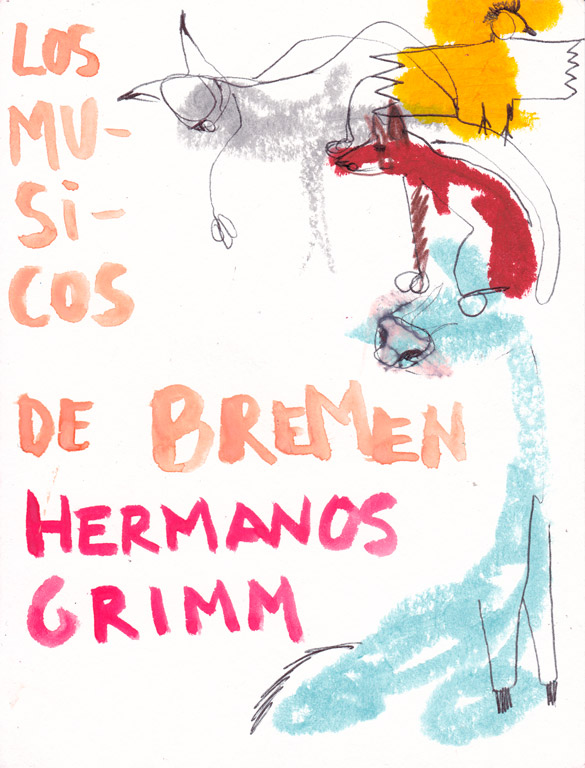 LOS
MU-
Si-
COS
DE BREMEN
HERMANOS
GRIMM